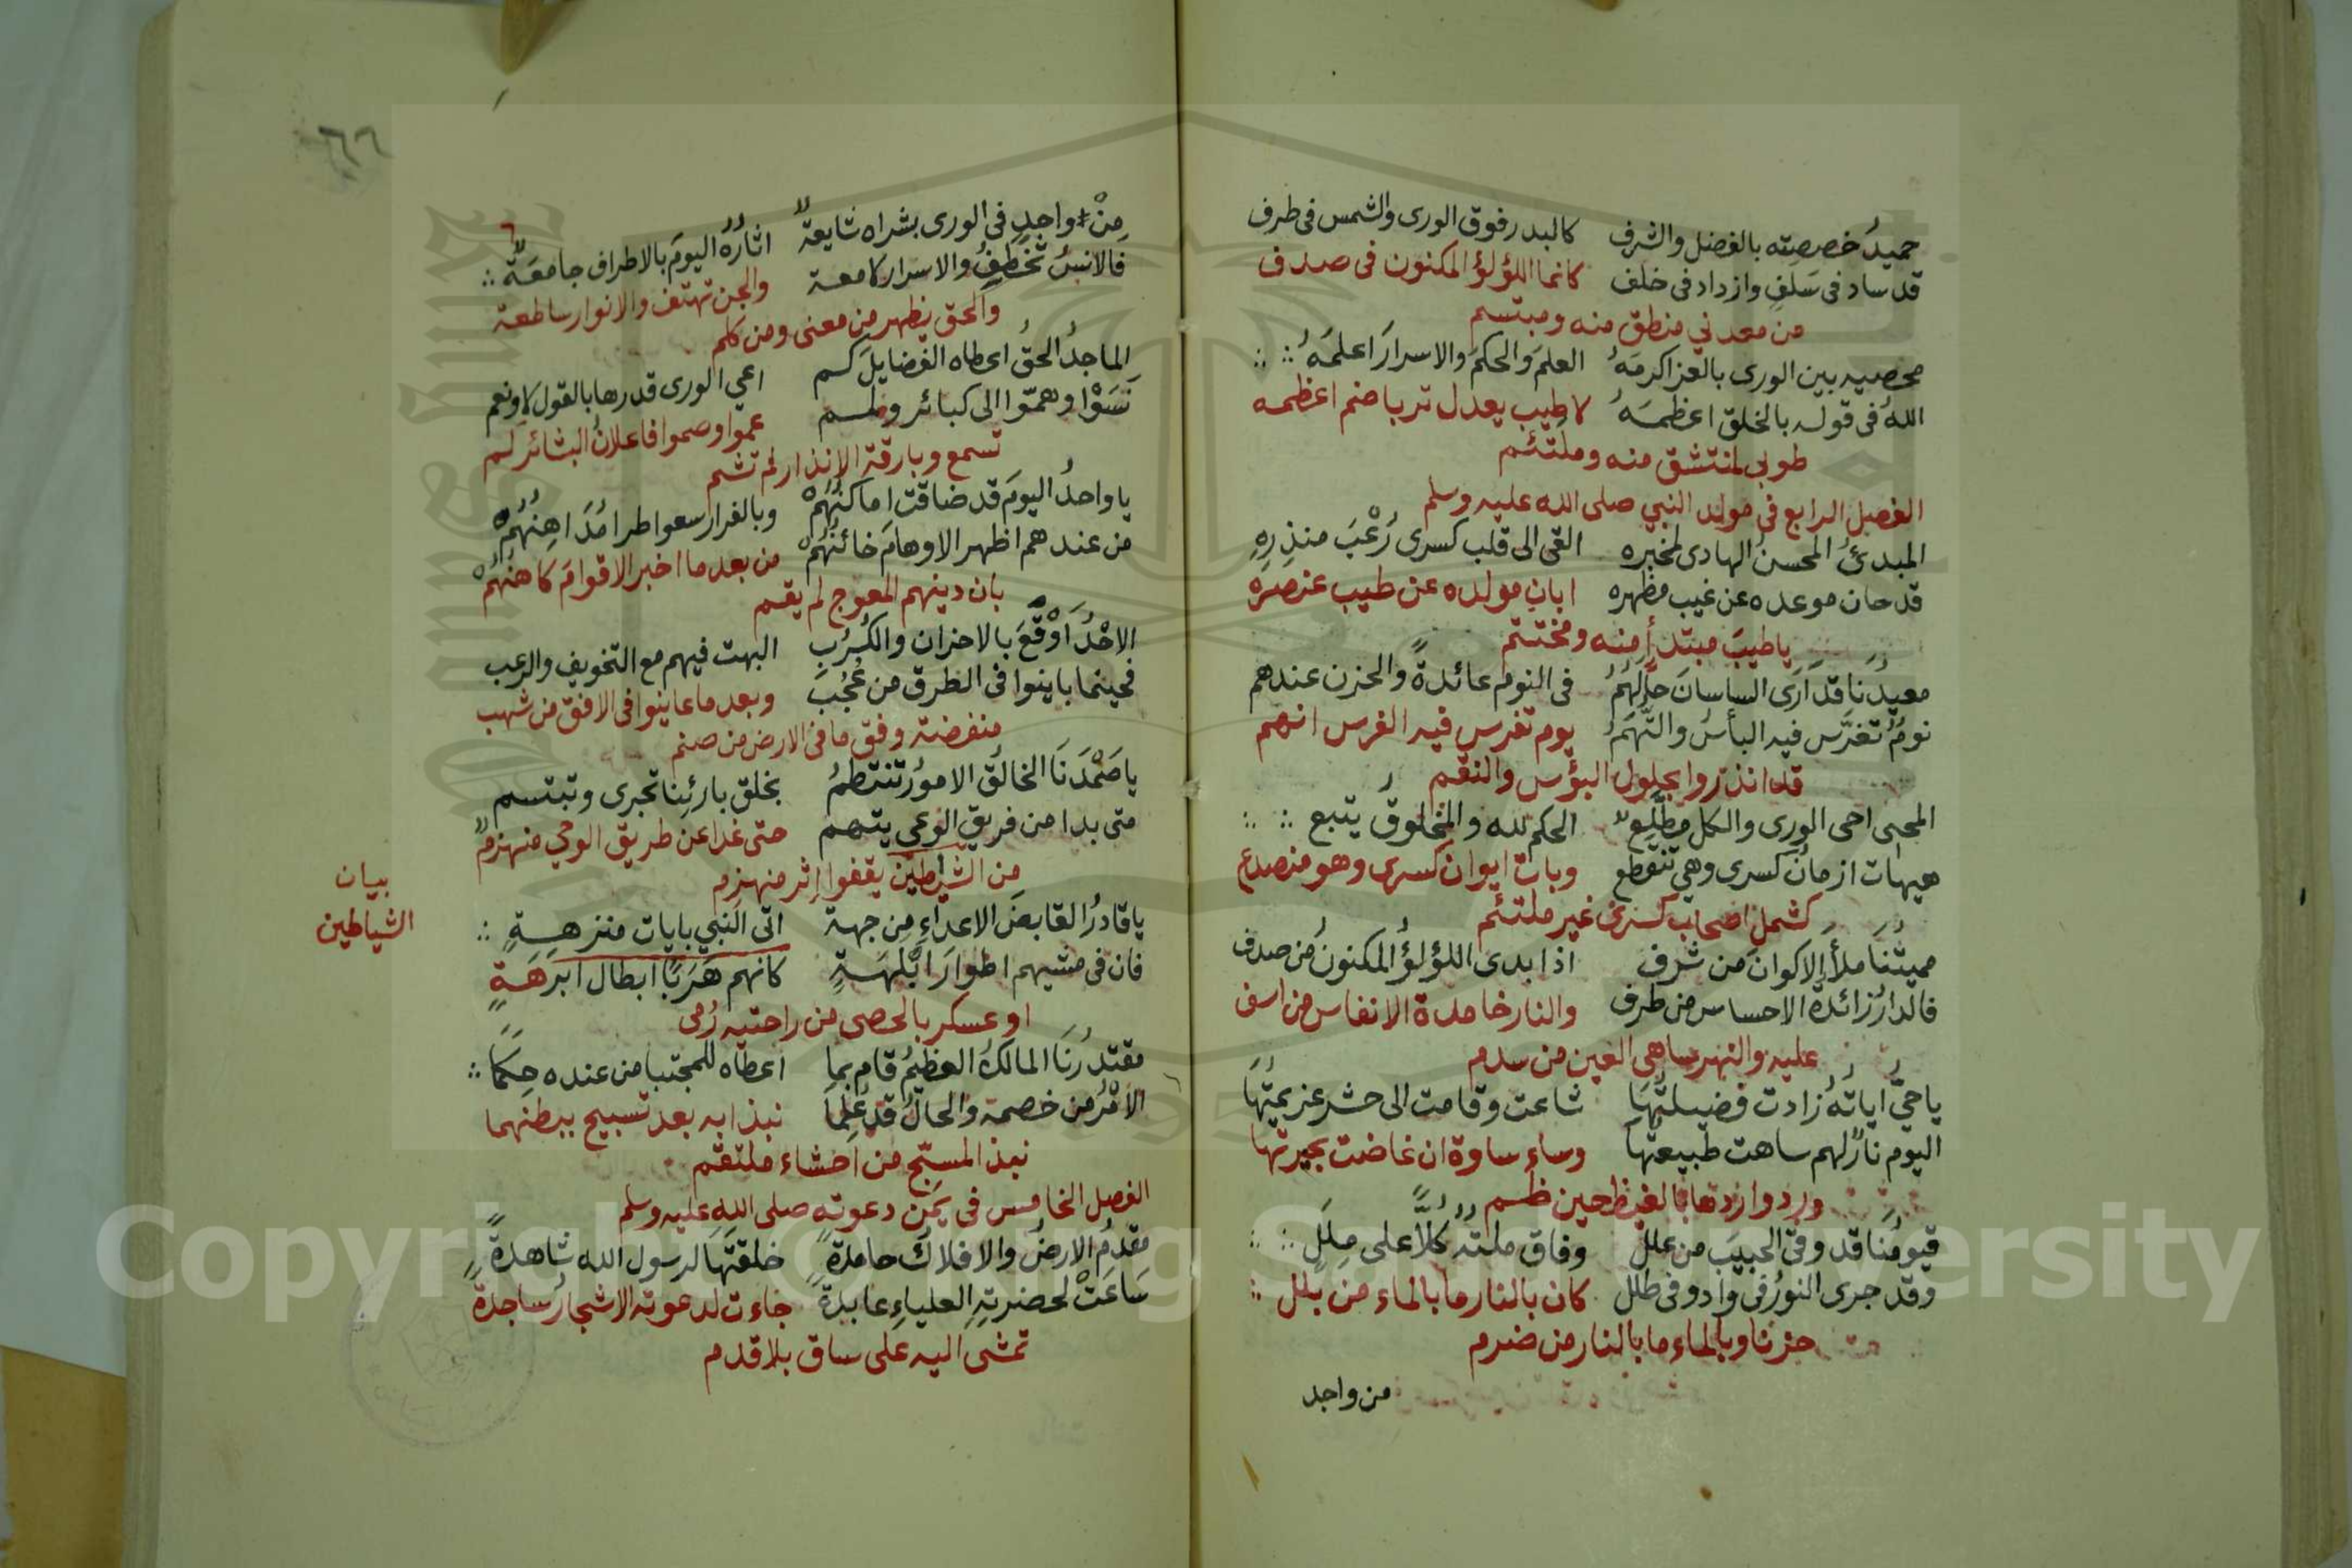 حميدُ خصصته بالفضل والشرف كالبدر فوق الورى والشمس فى طرف
قد ساد فى سَلَفٍ وازداد فى خلف كانما اللؤلؤ المكنون فى صدف
من معدني منطق منه ومبتسم
محصيه بين الورى بالعز اكرمَهُ العلمَ والحكمَ والاسرارَ اعلمَهُ
اللهُ فى قوله بالخلق اعظمَهُ لا طيب يعدل تربا ضم اعظمه
طوبى لمنتشق منه وملتثم
الفصل الرابع فى مولد النبي صلى الله عليه وسلم
المبدئُ المحسنُ الهادى لمخبره القى الى قلب كسرى رُعْبَ منذِرِهِ
قد حان موعده عن غيب مظهره ابان مولده عن طيب عنصره
ياطيبَ مبتدأ منه ومختتم
معيدُنا قد اَرَى الساسانَ حلمَهُمُ فى النوم عائدةً والحزن عندهم
نومٌ تفرَّس فيه البأسُ والتُّهَمُ يوم تفرس فيه الفرس انهم
قد انذروا بحلول البؤس والنقم
المحيى احى الورى والكل مطَّلِع الحكم لله والمخلوقُ يتبع
هيهات ازمانُ كسرى وهي تنقطع وبات ايوان كسرى وهو منصدع
كشمل اصحاب كسرى غير ملتئم
مميتُنَا ملأَ الاكوانَ من شرف اذا بدى اللؤلؤُ المكنونُ من صدف
فالدارُ زائدةُ الاحساس من طرف والنار خامدة الانفاس من اسف
عليه والنهر ساهى العين من سدم
ياحيّ اياتُهُ زادت فضيلتُهَا شاعت وقامت الى حشر عزيمتُهَا
اليوم نارٌ لهم ساهت طبيعتُها وساء ساوة ان غاضت بحيرتها
ورد واردها بالغيظ حين ظم
قيومُنَا قد وقىّ الحبيبَ من علل وفاق ملتُه كُلّاً على مِلَلٍ
وقد جرى النورُ فى واد وفى طلل كان بالنار ما بالماء من بلل
حزنا وبالماء ما بالنار من ضرم
من واجد
٦٦
مِنْ واجدٍ فى الورى بشراه شايعةٌ اثارُهُ اليومَ بالاطراف جامعَةٌ
فالانسُ تَخطفُ والاسرار لامعة والجن تهتف والانوار ساطعة
والحق يظهر من معنى ومن كلم
الماجدُ الحقُ اعطاه الفضايلَ كم اعي الورى قدرها بالقول لا ونعم
نَسَوْا وهمّوا الى كبائر وظلم عموا وصموا فاعلانُ البشائر لم
تسمع وبارقة الانذار لم تشم
يا واحدُ اليومَ قد ضاقت اماكنُهُمْ وبالفرار سعوا طرا مُدَاهِنُهُمْ
من عندهم اظهر الاوهامَ خائنُهُمْ من بعد ما اخبر الاقوامَ كاهنُهُمْ
بان دينهم المعوج لم يقم
الاحْدُ اَوْقَعَ بالاحزان والكُرَبِ البهت فيهم مع التخويف والرعب
فحينما باينوا فى الطرق من عُجُبَ وبعد ما عاينوا فى الافق من شهب
منقضة وفق ما فى الارض من صنم
ياصَمْدَنَا الخالقُ الامورُ تنتظمُ بخلق بارئِنا تجرى وتبتسم
متى بدا من فريق الوعى يتهم حتى غدا عن طريق الوحي منهزمٌ
من الشياطين يقفوا اثر منهزم
بيان
الشياطين
ياقادرُ القابضَ الاعداءِ مِن جهة اتى النبي بايات منزهةٍ
فان فى مشيهم اطوارَ ابْلهَةٍ كانهم هَرَبًا ابطال ابرهَةٍ
او عسكر بالحصى من راحتيه رُمى
مقتدرُنَا المالكُ العظيمُ قام بما اعطاه للمجتبا من عنده حِكَمًا
الاَمْرُ من خصمة والحالُ قد عُلِمَا نبذا به بعد تسبيح ببطنهما
نبذ المسبّح من احشاء ملتقم
الفصل الخامس فى يُمن دعوته صلى الله عليه وسلم
مقدمُ الارضُ والافلاكَ حامدةً خلقتَهَا لرسول الله شاهدةً
سَاعَتْ لحضرتِهِ العلياءِ عابدةً جاءت لدعوته الاشجارُ ساجدةً
تمشى اليه على ساق بلا قدم
Copyright © King Saud University